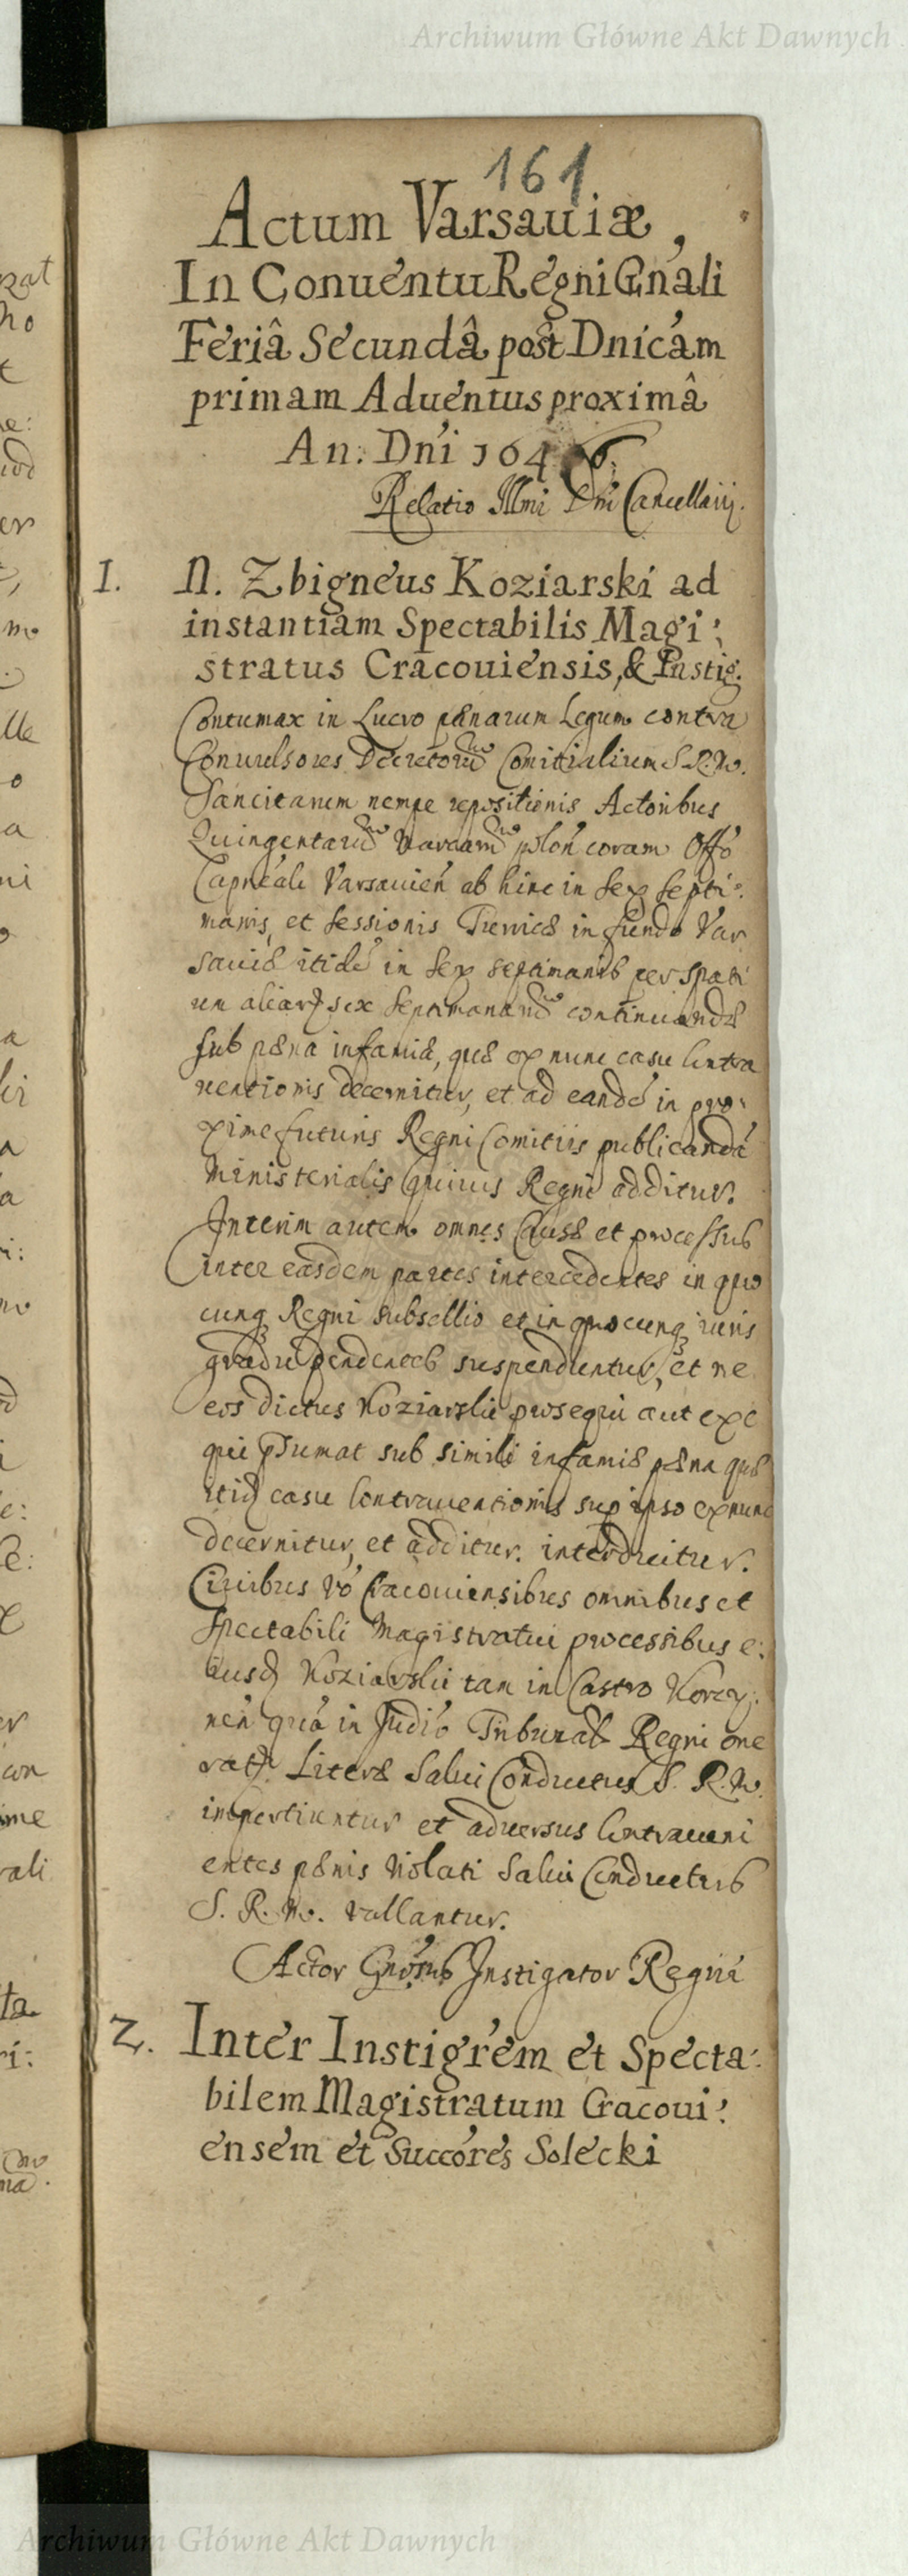 Archiwum Główne Akt Dawnych
161
Actum Varsauiæ,
In Conuentu Regni Gńali
Feriâ Secundâ post Dnicam
primam Aduentus proximâ
An. Dńi 1646.
Relatio Illmi Dni Cancellarij.
1. N. Zbigneus Koziarski ad
instantiam Spectabilis Magi:
stratus Cracouiensis, & Instig.
Contumax in Lucro pænarum Legum contra
Conuulsores Decretorū Comitialium S. R. M.
Sancitarum nempe repositionis Actoribus
Quingentarū Marcarū polon coram Offo
Capńeali Varsauień ab hinc in sex septi:
manis, et sessionis Turricæ in fundo Var
sauiæ itidē in sex septimanis per spati
um aliarum sex septimanarū continuandæ
sub pæna infamiæ, quæ ex nunc casu contra
uentionis decernitur, et ad eandē in pro:
xime futuris Regni Comitiis publicandā
Ministerialis quiuis Regni additur.
Interim autem omnes Causæ et processus
inter easdem partes intercedentes in quo
cunq Regni subsellio et in quocunq iuris
gradu pendentes suspenduntur, et ne
eos dictus Koziarski prosequi aut exe
qui psumat sub simili infamiæ pæna quæ
itid casu contrauentionis sup ipso exnunc
decernitur, et additur. interdicitur.
Ciuibus vō Cracouiensibus omnibus et
Spectabili Magistratui processibus e:
iusd Koziarski tam in Castro Korczy:
neń quā in Judiō Tribunal Regni one
rat Literæ Salui Conductus S. R. M.
impertiuntur et aduersus contraueni
entes pænis violati Salui Conductus
S. R. M. vallantur.
Actor Gńosus Instigator Regni
2. Inter Instigrem et Specta:
bilem Magistratum Cracoui:
ensem et Succóres Solecki
Archiwum Główne Akt Dawnych